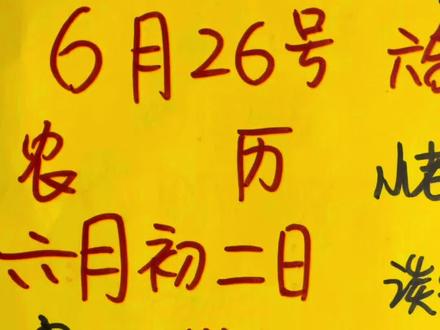 6月26号
农历
六月初二日